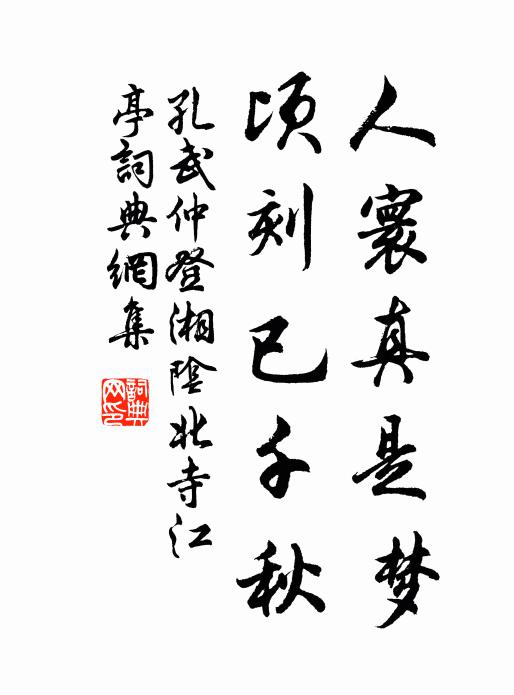 人寰真是梦
顷刻已千秋
孔武仲登湘陰北寺江
亭詞典網集
詞典网印